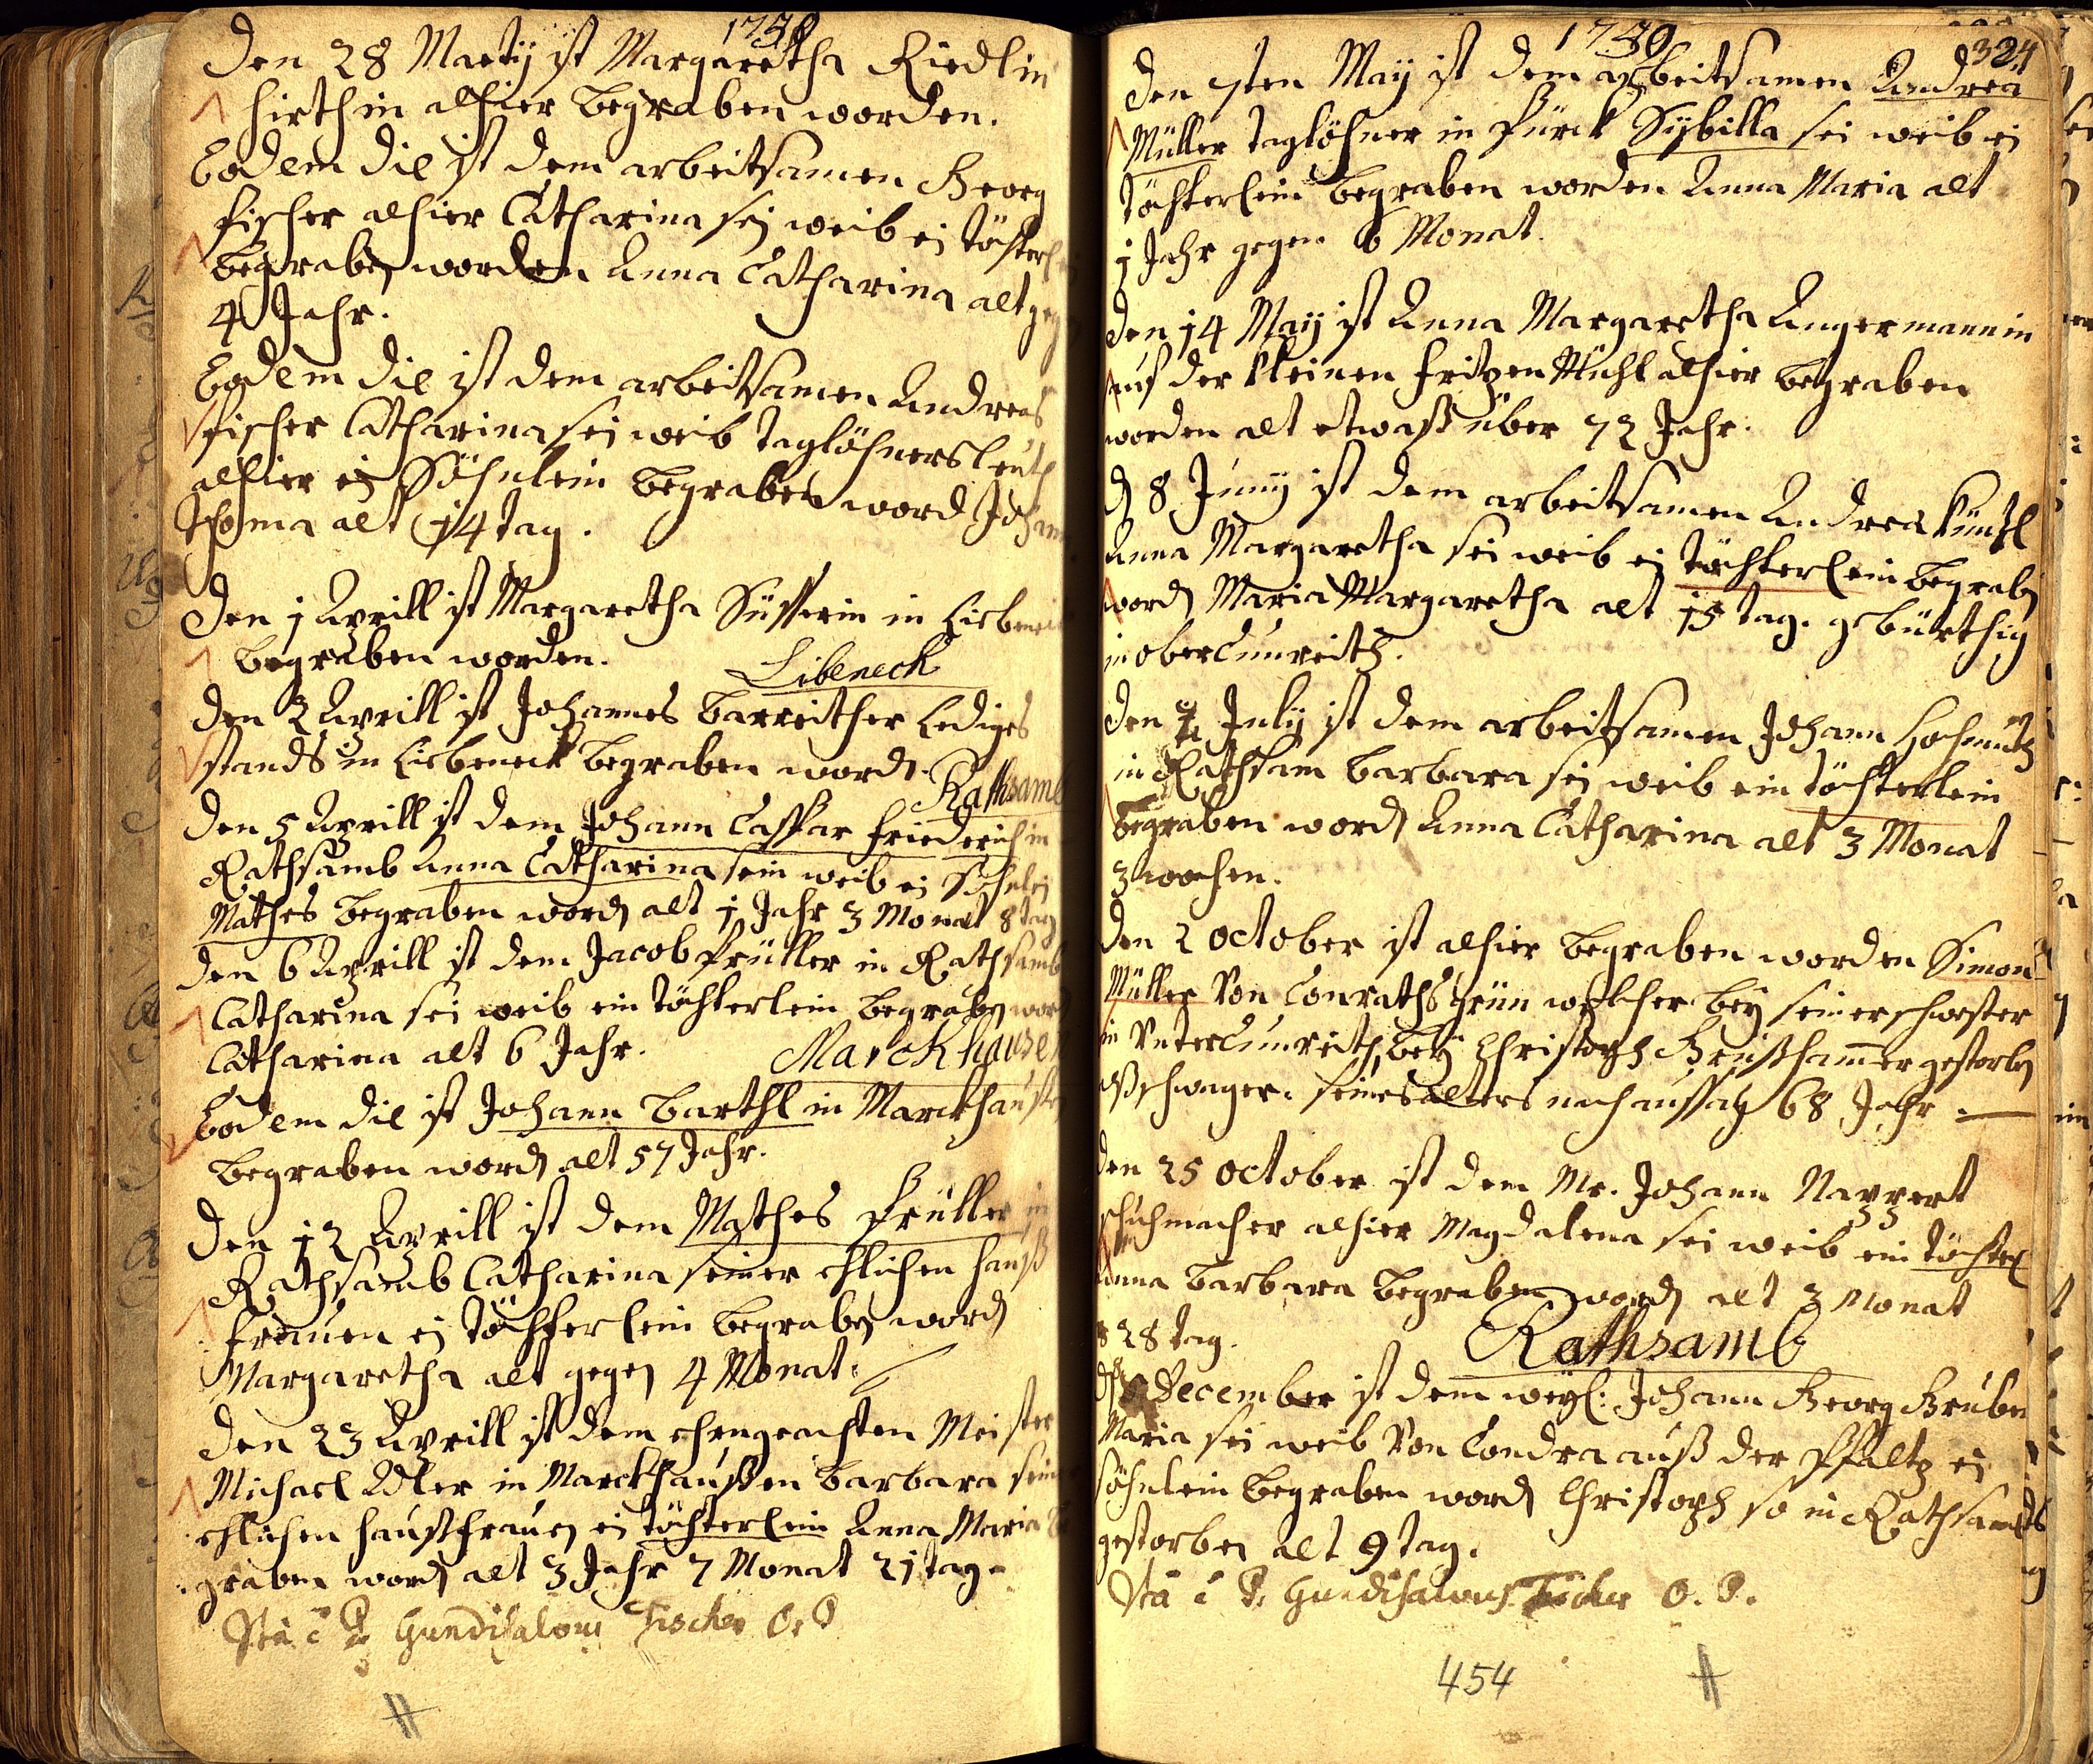 1730
Den 28 Martij ist Margaretha Riedlin
hirthin alhier begraben worden.
Eodem die ist dem arbeitsamen Georg
fischer alhier Catharina sei weib ei töchterl
begraben worden Anna Catharina alt geg
4 Jahr.
Eodem die ist dem arbeitsamen Andreas
fischer Catharina sei weib taglöhners leuth
alhier ei Söhnlein begraben word Johann
Thoma alt 14 tag.
Den 1 Aprill ist Margaretha Süsserin in Liebeneck
begraben worden.
Libeneck
Den 3 Aprill ist Johannes Barreither lediges
stands in Liebeneck begraben word.
Rathsamb
Den 5 Aprill ist dem Johann Casspar friederich in
Rathsamb Anna Catharina sein weib ei Söhnlei
Mathes begraben word alt 1 Jahr 3 Monat 8 tag
Den 6 Aprill ist dem Jacob Prüller in Rathsamb
Catharina sei weib ein töchterlein begraben word
Catharina alt 6 Jahr.
Marckhausen
Eodem die ist Johann Barthl in Marckhaussen
begraben word alt 57 Jahr.
Den 12 Aprill ist dem Mathes Prüller in
Rathsamb Catharina seiner ehlichen hauß
frauen ei töchterlein begraben word
Margaretha alt gegen 4 Monat.
Den 23 Aprill ist dem ehrngeachten Meister
Michael Adler in Marckhaussen Barbara sein
ehlichen haussfrauen ei töchterlein Anna Maria be
graben word alt 3 Jahr 7 Monat 21 tag.
Ita e P. Gundisalvus Fischer O. P.
1730
324
Den 7ten Maij ist dem arbeitsamen Andrea
Müller taglöhner in Pürck Sybilla sei weib ei
töchterlein begraben worden Anna Maria alt
1 Jahr gegen 6 Monat.
Den 14 Maij ist Anna Margaretha Angermannin
auf der kleinen fritzen Mühl alhier begraben
worden alt etwaß über 72 Jahr.
D 8 Junij ist dem arbeitsamen Andrea Künzl
Anna Margaretha sei weib ei töchterlein begraben
word Maria Margaretha alt 15 tag. gebürthig
in obercunreith.
Den July ist dem arbeitsamen Johann Hochmuth
in Rathsam Barbara sei weib ein töchterlein
begraben word Anna Catharina alt 3 Monat
3 wochen.
Den 2 October ist alhier begraben worden Simon
Müller von Conrathsgrün welcher bey seiner schwester
in Untercunreith bey Christoph gestorben
schwager. seines alters nach aussag 68 Jahr.
Den 25 October ist dem Mr. Johann Nappert
schuhmacher alhier Magdalena sei weib ein töchterl
Anna Barbara begraben word alt 3 Monat
28 tag.
Rathsamb
December ist dem weyl: Johann Georg Gruber
Maria sei weib von Condra auß der Pfaltz ei
söhnlein begraben word Christoph so in Rathsamb
gestorben alt 9 tag.
Ita e P. Gundisalvus Fischer O. P.
454